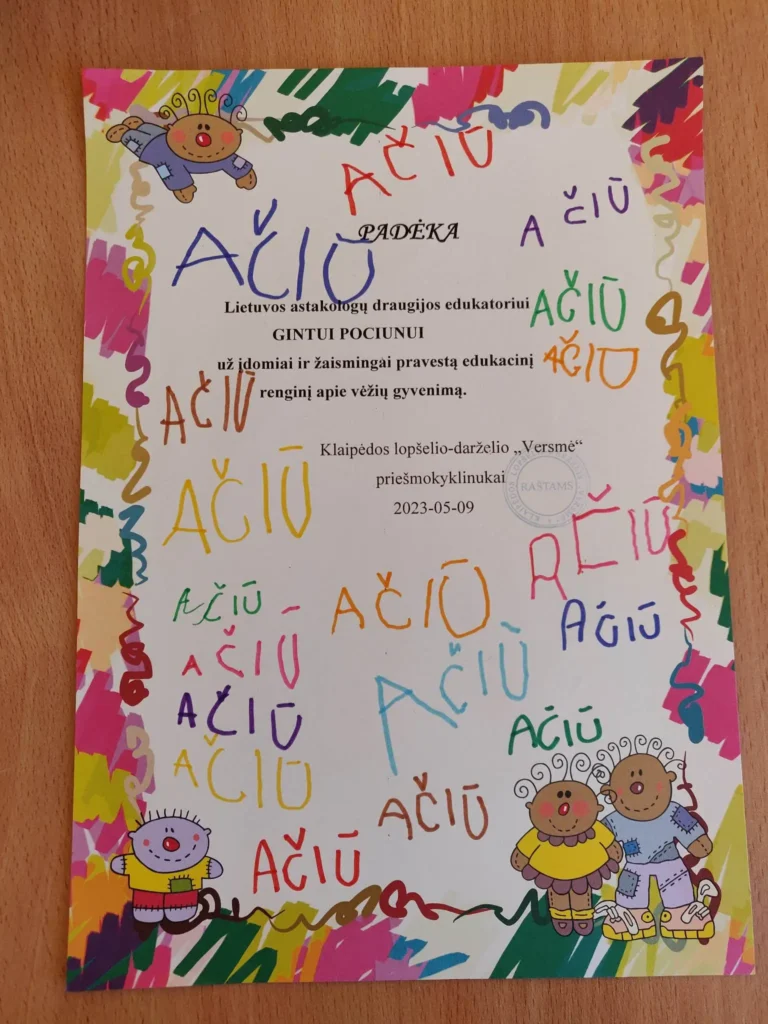 AČIŪ
AČIŪ
PADĖKA
AČIŪ
Lietuvos astakologų draugijos edukatoriui
AČIŪ
GINTUI POCIUNUI
už įdomiai ir žaismingai pravestą edukacinį
AČIŪ
renginį apie vėžių gyvenimą.
AČIŪ
Klaipėdos lopšelio-darželio „Versmė“
priešmokyklinukai
RAŠTAMS
2023-05-09
AČIŪ
AČIŪ
AČIŪ
AČIŪ
AČIŪ
AČIŪ
AČIŪ
AČIŪ
AČIŪ
AČIŪ
AČIŪ
AČIŪ